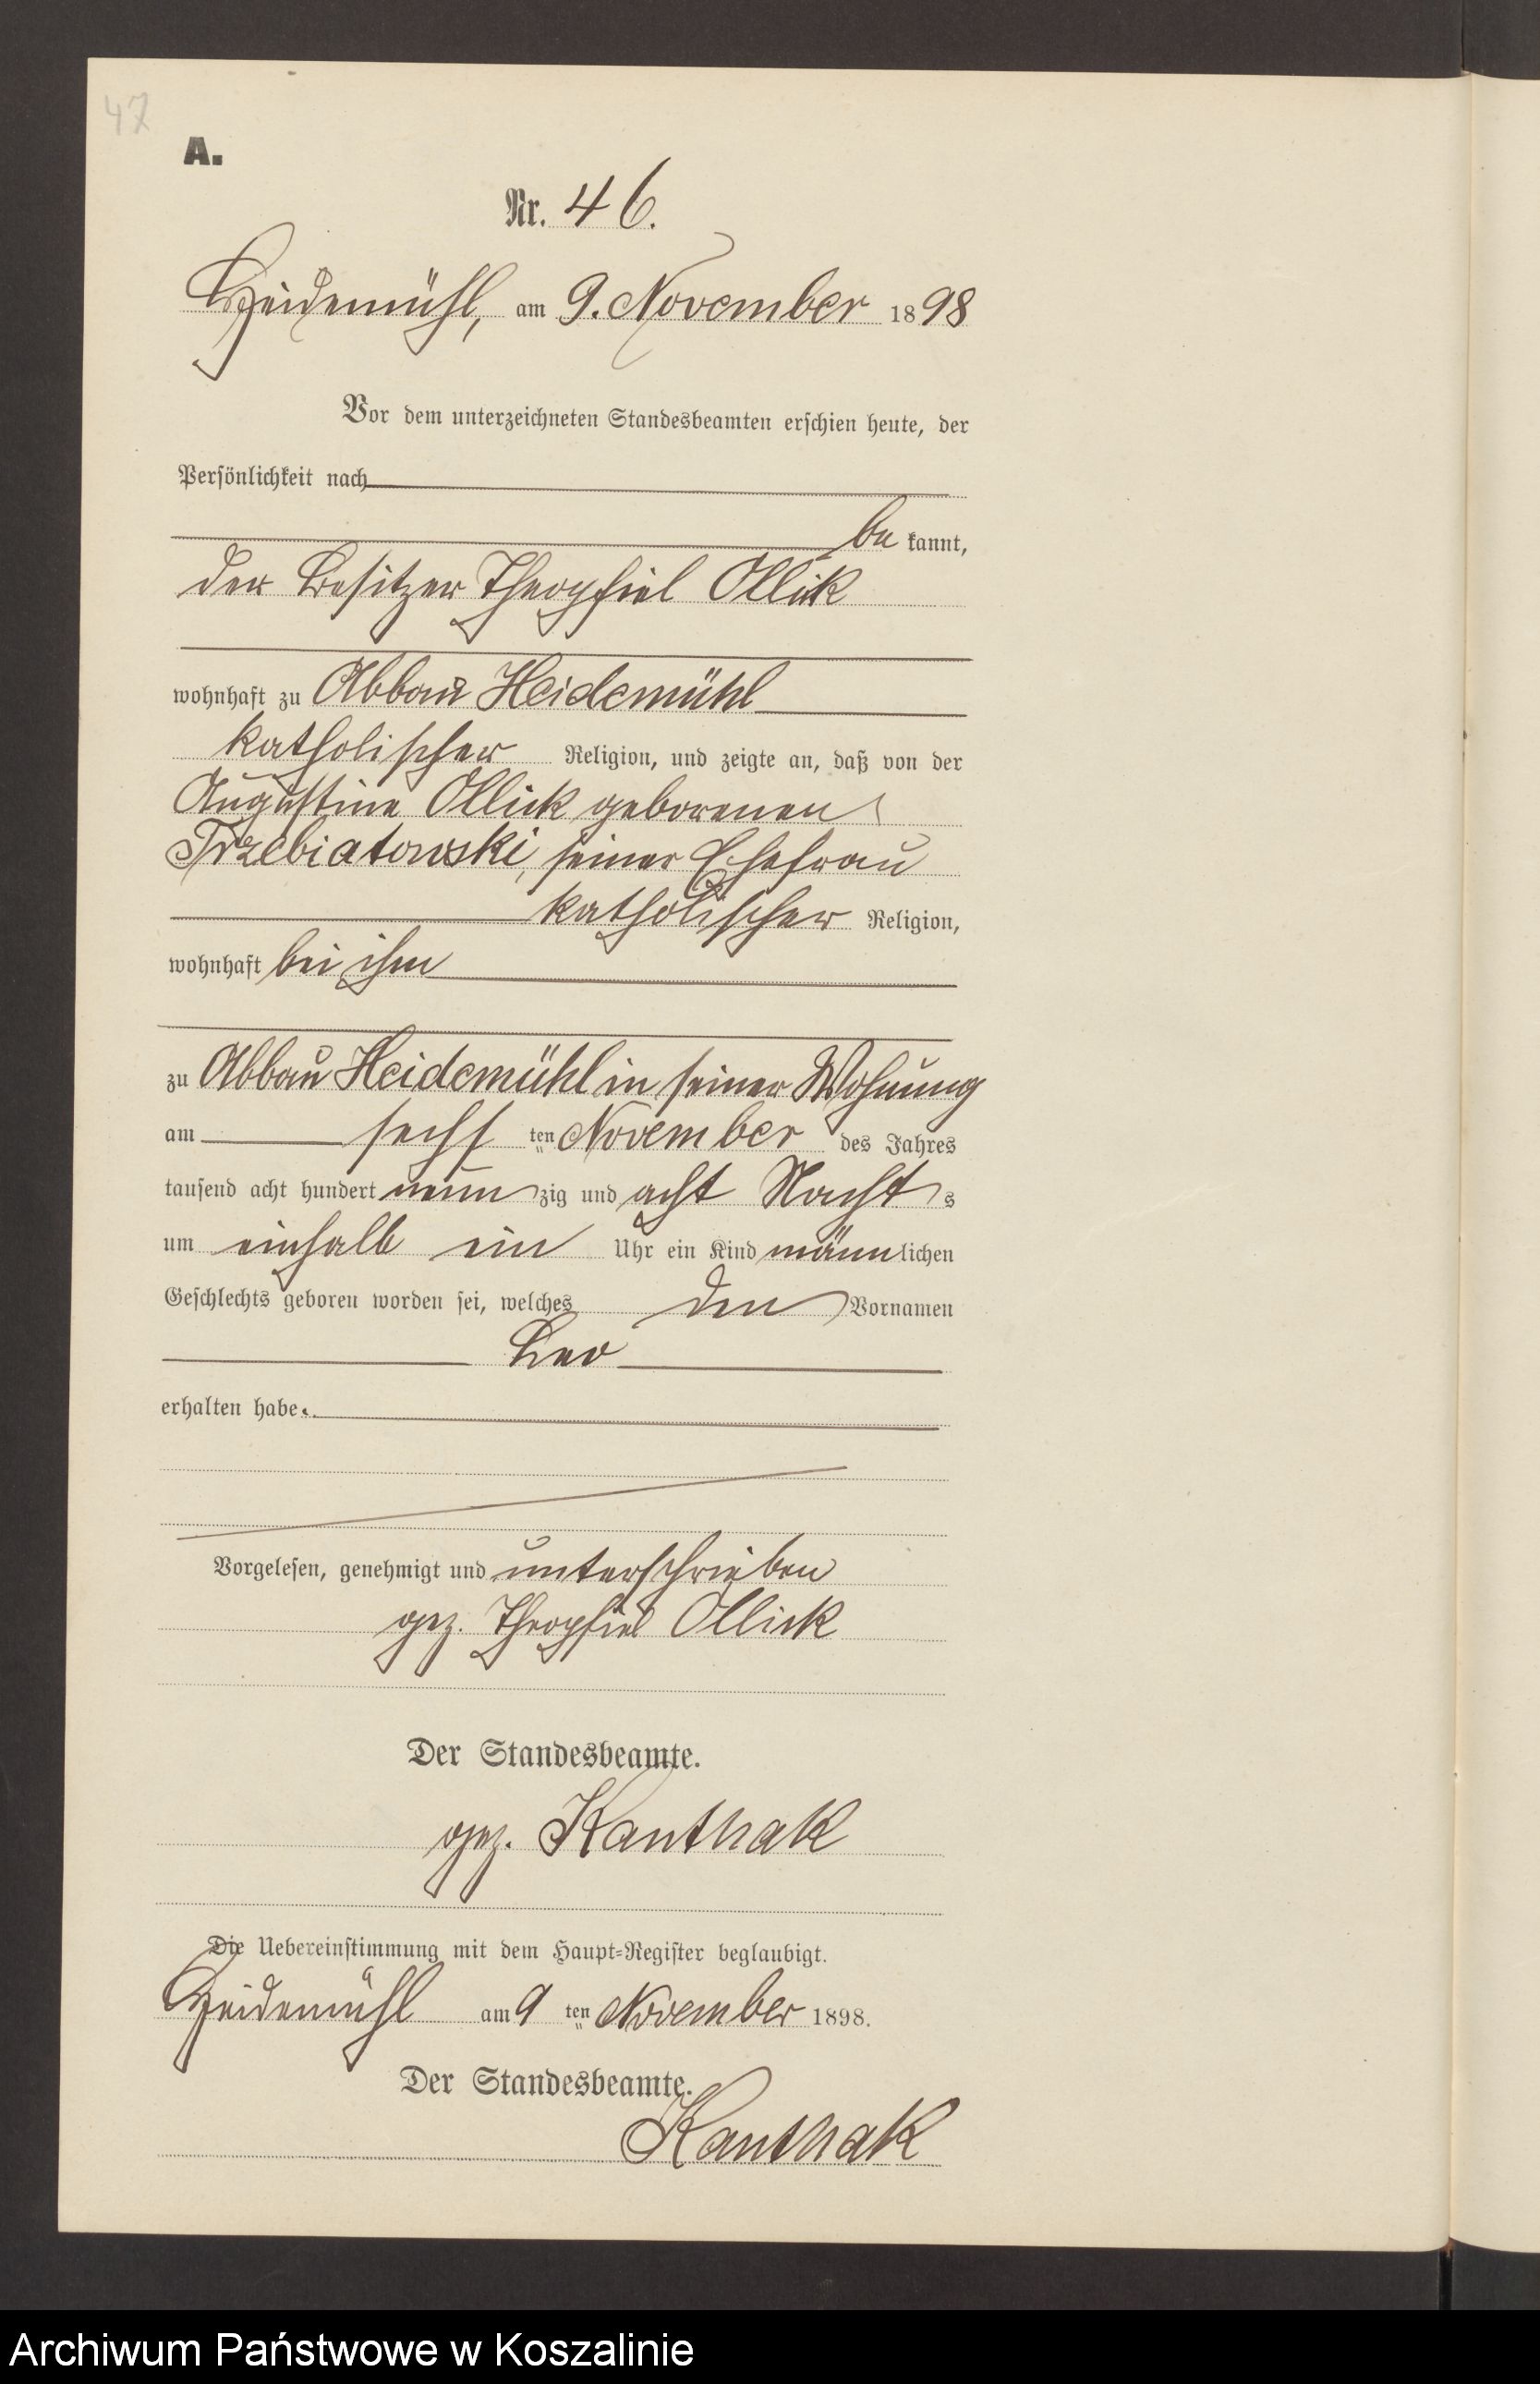 47
A.
Nr. 46.
Heidemühl, am 9. November 1898
Vor dem unterzeichneten Standesbeamten erschien heute, der
Persönlichkeit nach
be kannt,
der Besitzer Theophiel Ollik
wohnhaft zu Abbau Heidemühl
katholischer Religion, und zeigte an, daß von der
Augustine Ollick geborenen
Trzebiatowski, seiner Ehefrau
katholischer Religion,
wohnhaft bei ihm
zu Abbau Heidemühl in seiner Wohnung
am sechs ten November des Jahres
tausend acht hundert neun zig und acht Nacht s
um einhalb ein Uhr ein Kind männlichen
Geschlechts geboren worden sei, welches den Vornamen
Leo
erhalten habe.
Vorgelesen, genehmigt und unterschrieben
gez. Theophiel Ollick
Der Standesbeamte.
gez. Kanthak
Die Uebereinstimmung mit dem Haupt-Register beglaubigt.
Heidemühl am 9 ten November 1898.
Der Standesbeamte.
Kanthak
Archiwum Państwowe w Koszalinie